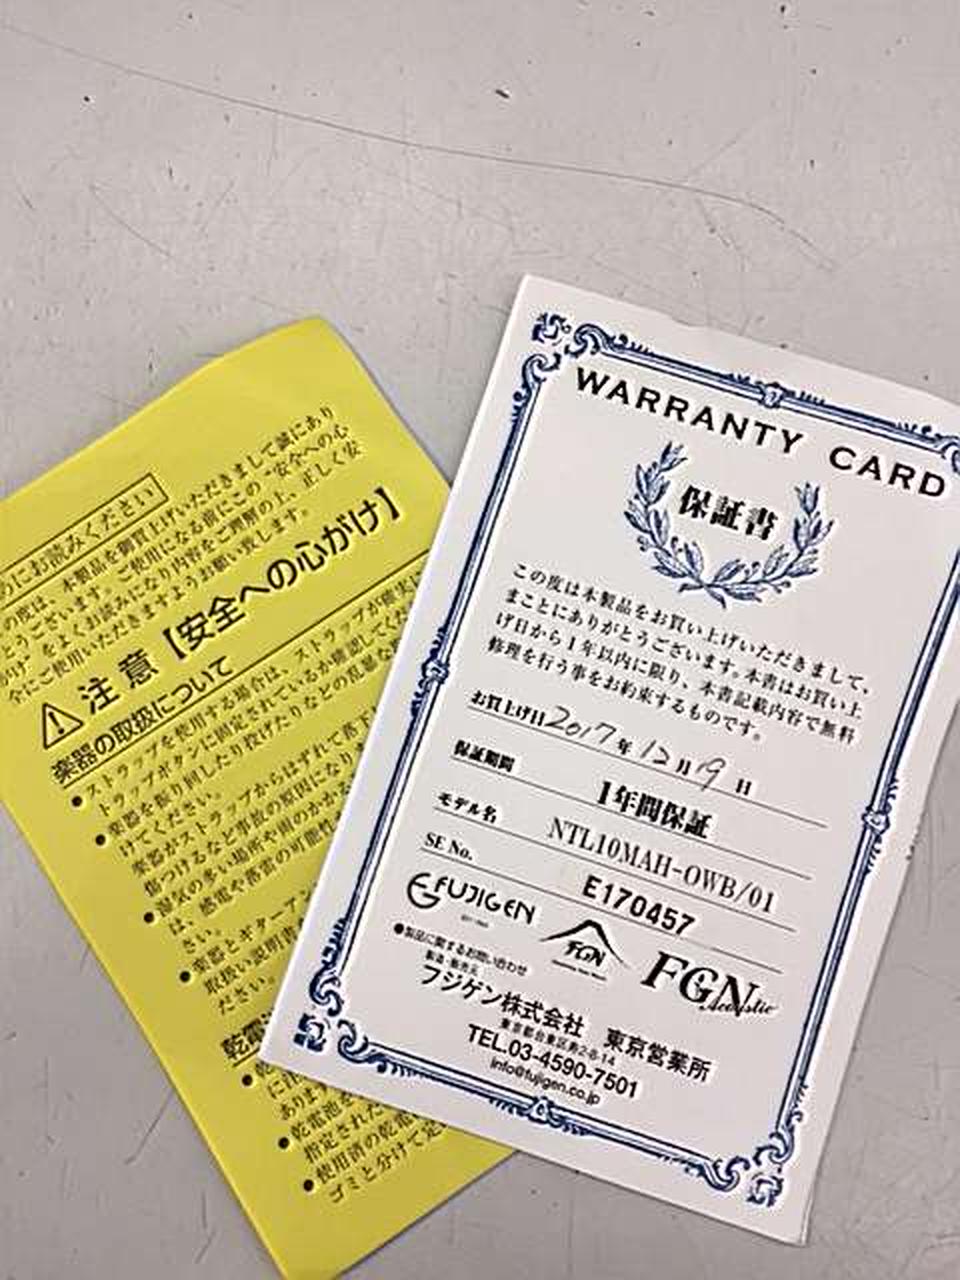 めにお読みください
の度は、本製品を御買上げいただきまして誠にあり
とうございます。ご使用になる前にこの“安全への心
がけ”をよくお読みになり内容をご理解の上、正しく安
全にご使用いただきますようお願い致します。
注意【安全への心がけ】
楽器の取扱について
●ストラップを使用する場合は、ストラップが確実に
トラップボタンに固定されているか確認してくだ
●楽器を振り回したり投げたりなどの乱暴な
けてください。
楽器がストラップからはずれて落下
傷つけるなど事故の原因になり
●湿気の多い場所や雨のかか
は、感電や落雷の可能性
さい。
●楽器とギターアン
取扱い説明書
ださい。
乾電
あります
●乾電池を
指定された
●使用済の乾電
ゴミと分けて
WARRANTY CARD
保証書
この度は本製品をお買い上げいただきまして、
まことにありがとうございます。本書はお買い上
げ日から1年以内に限り、本書記載内容で無料
修理を行う事をお約束するものです。
お買上げ日 2017年 12月 19日
保証期間 1年間保証
モデル名 NTL10MAH-OWB/01
SE No. E170457
FUJIGEN FGN FGN Acoustic
●製品に関するお問い合わせ
製造・販売元
フジゲン株式会社 東京営業所
東京都台東区寿2-8-14
TEL.03-4590-7501
info@fujigen.co.jp